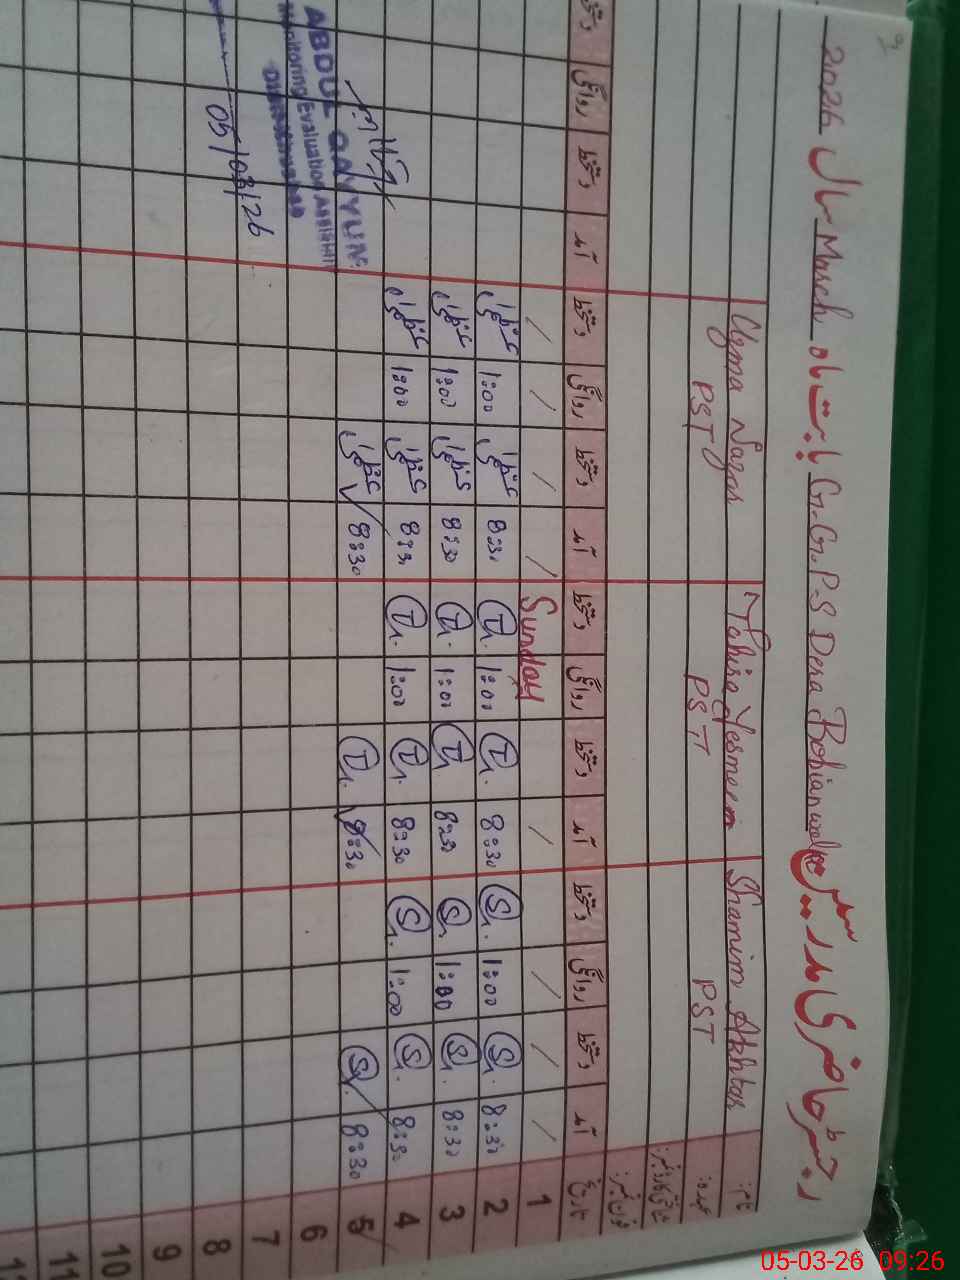 رجسٹر حاضری مدرسین G.G.P.S Dera Bohianwala بابت ماہ March سال 2026
نام: Shamim Akhtar Tahira Yesmeen Uzma Nazar
عہدہ: PST PST PST
شناختی کارڈ نمبر:
فون نمبر:
تاریخ آمد دستخط روانگی دستخط آمد دستخط روانگی دستخط آمد دستخط روانگی دستخط آمد دستخط روانگی دستخط
1 Sunday
2 8:30 Sh. 1:00 Sh. 8:30 Th. 1:00 Th. 8:30 1:00
3 8:30 Sh. 1:00 Sh. 8:30 Th. 1:00 Th. 8:30 1:00
4 8:30 Sh. 1:00 Sh. 8:30 Th. 1:00 Th. 8:30 1:00
5 8:30 Sh. 8:30 Th. 8:30
ABDUL QAYYUM
Monitoring Evaluation Assistant
6
7
05/03/26
8
9
10
11
05-03-26 09:26